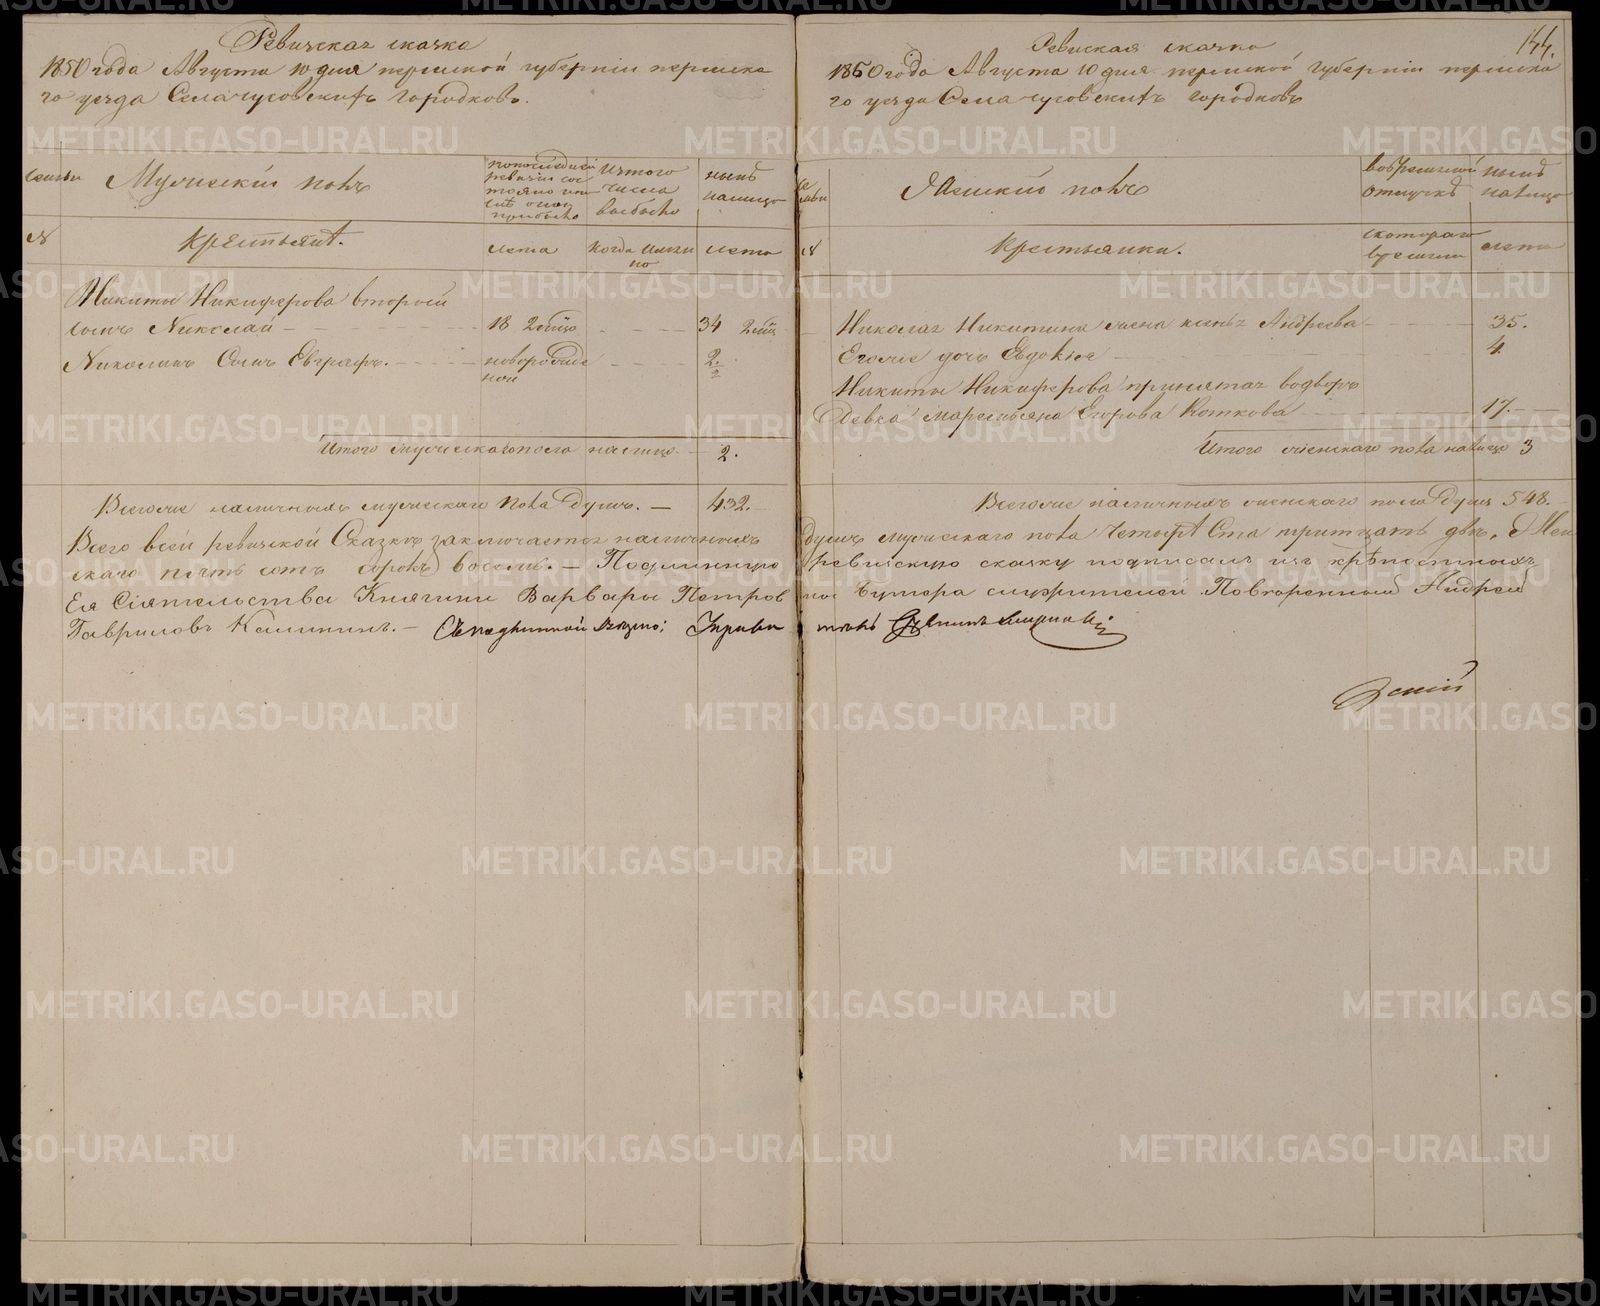 Ревизская сказка
1850 года Августа 10 дня пермской губернии пермска
го уезда Села чусовскихъ городковъ.
семьи
Мужеский полъ
по последней
ревизии сос
тояло и по
слѣ оной
прибыло
Изтого
числа
выбыло
нынѣ
налицо
№
Крестьянѣ.
лета
когда имян
но
лета
Никиты Никиферова второй
сынъ Николай
18 2 общо
34
Николаинъ Сынъ Евграфъ.
новорожде
ной
2.
2
Итого мужескаго пола налицо
2.
Всегоже наличныхъ мужескаго пола Душъ. —
432.
Всего всей ревизской Сказкѣ заключается наличныхъ
скаго пять сотъ сорокъ восемь. — Подлинную
Ея Сіятельства Княгини Варвары Петров
Гавриловъ Калининъ. —
Ревиская скаска
144.
1850 года Августа 10 дня пермской губерніи пермска
го уезда Села чусовскихъ городковъ
се
мьи
Женский полъ
во временной
отлучкѣ
нынѣ
налицо
№
Крестьянки.
скотораго
времени
лета
Николая Никитина жена ксенья Андреева
35.
Егоже дочь Евдокия
4.
Никиты Никиферова принятая водворъ
Девка маремьяна Егорова Коткова
17.
Итого женскаго пола налицо
3
Всегоже наличныхъ женскаго пола Душъ 548.
душъ мужескаго пола Четырѣ Ста тритцать двѣ, Жен
ревизскую скаску подписалъ изъ крѣпостныхъ
ны Бутера служителей Поверенный Андрей
METRIKI.GASO-URAL.RU